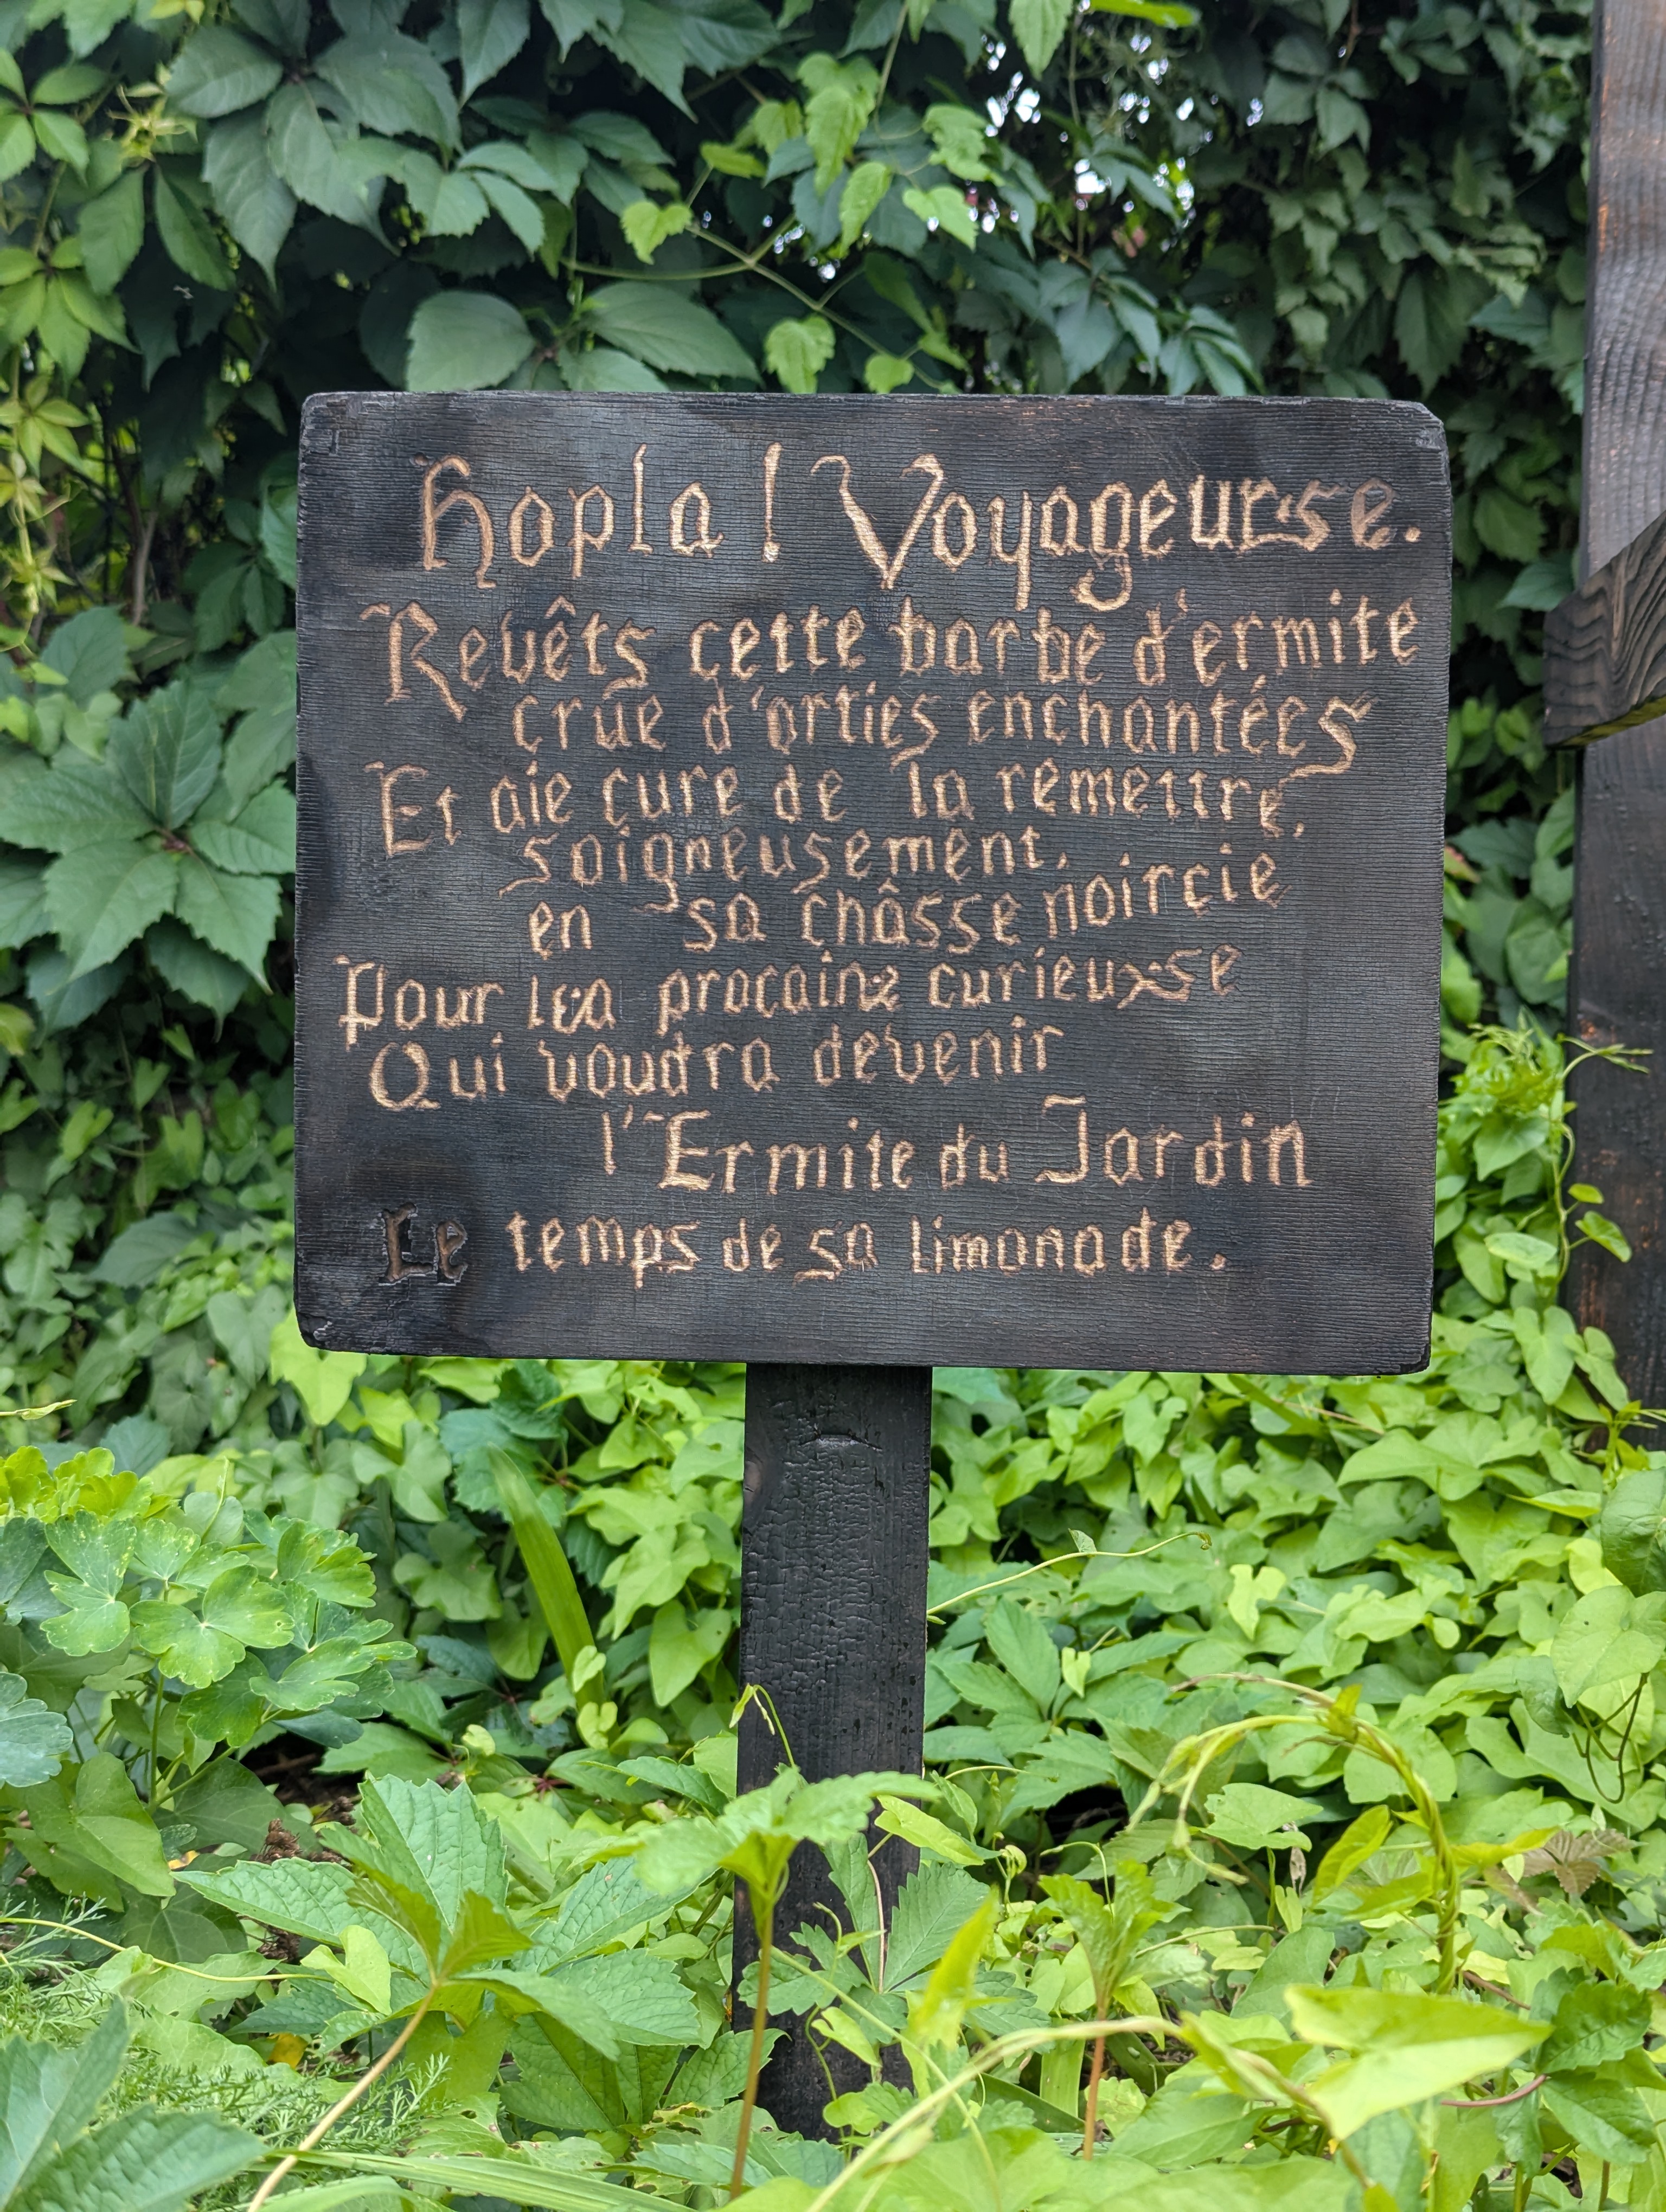 Hopla ! Voyageurse.
Revêts cette barbe d'ermite
crue d'orties enchantées
Et aie cure de la remettre,
soigneusement,
en sa châsse noircie
Pour lea procaine curieuxse
Qui voudra devenir
l'Ermite du Jardin
Le temps de sa limonade.